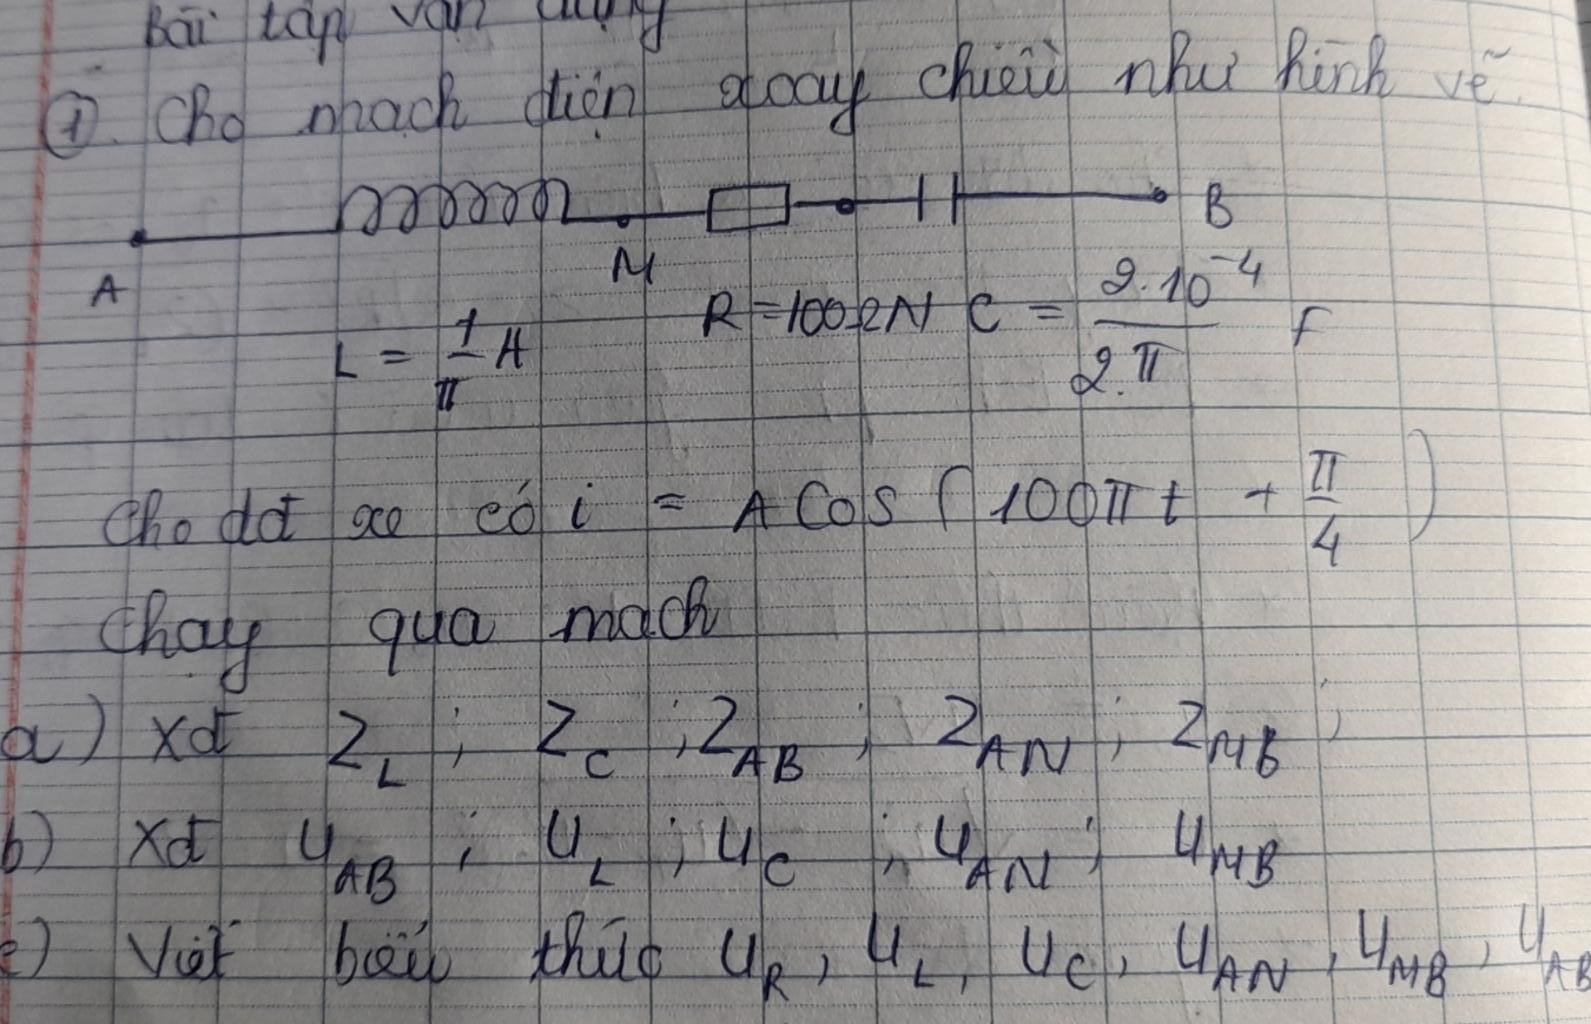 Bài tập vận dụng
①. Cho mạch điện xoay chiều như hình vẽ.
A M B
L = 1/π H R = 100Ω N C = 2.10⁻⁴/2.π F
Cho dđ xc có i = A Cos ( 100πt + π/4 )
chạy qua mạch
a) xđ Z_L ; Z_C ; Z_AB ; Z_AN ; Z_MB ;
b) xđ U_AB ; U_L ; U_C ; U_AN ; U_MB
c) Viết biểu thức U_R , U_L , U_C , U_AN , U_MB , U_AB